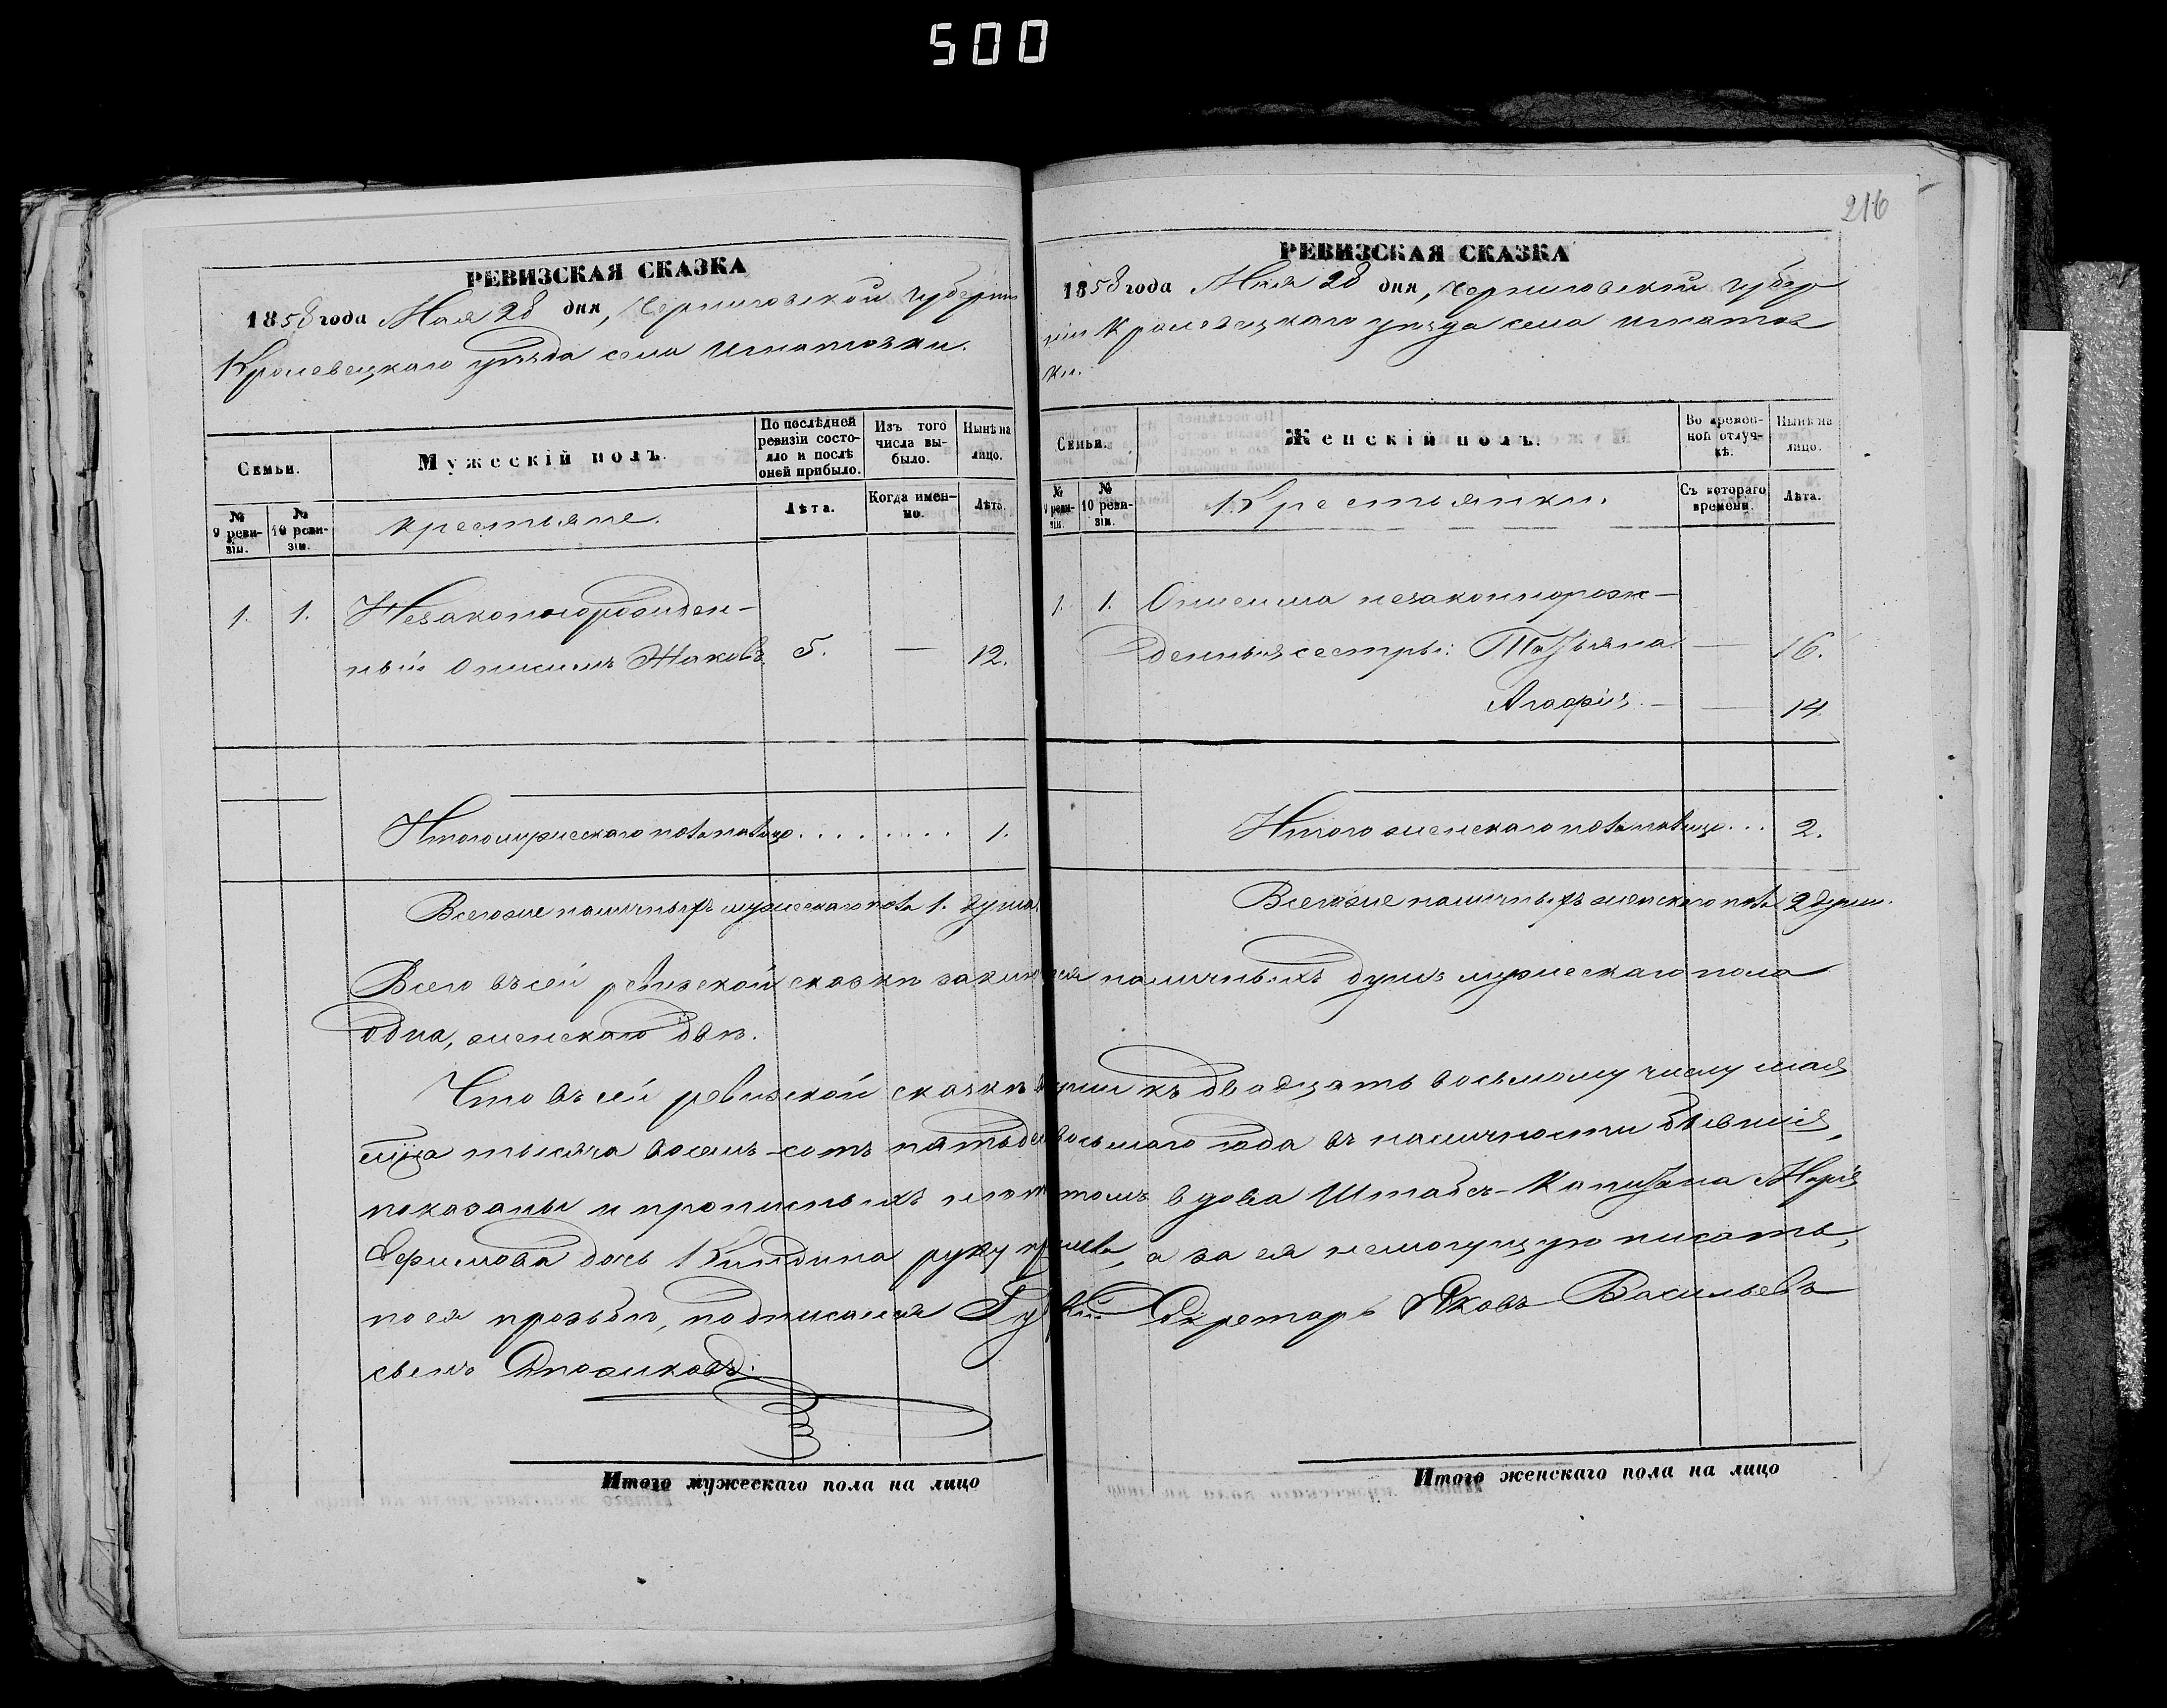 500
216
РЕВИЗСКАЯ СКАЗКА
1858 года Мая 28 дня, Черниговской губерніи
Кролевецкаго уѣзда села Игнатовки.
Семьи.
Мужескій полъ.
По послѣдней ревизіи состояло и послѣ оней прибыло.
Изъ того числа выбыло.
Нынѣ на лицо.
№ 9 ревизіи.
№ 10 ревизіи.
Крестьяне.
Лѣта.
Когда именно.
Лѣта.
1. 1. Незаконнорожден-
ный Онисимъ Яковъ 5. — 12.
Итого мужескаго пола на лицо . . . . . . . . 1.
Всего же наличныхъ мужескаго пола 1. душа.
РЕВИЗСКАЯ СКАЗКА
1858 года Мая 28 дня, Черниговской губер
ніи Кролевецкаго уѣзда села Игнатов
ки.
Семьи.
Женскій полъ.
Во временной отлучкѣ.
Нынѣ на лицо.
№ 9 ревизіи.
№ 10 ревизіи.
Крестьянки.
Съ котораго времени.
Лѣта.
1. 1. Онисима незаконнорож-
денныя сестры: Татьяна — 16.
Агафія — — 14
Итого женскаго пола на лицо . . . 2.
Всего же наличныхъ женскаго пола 2 души.
Всего въ сей ревизской сказкѣ наличныхъ душъ мужескаго пола
одна, женскаго двѣ.
Что въ сей ревизской сказкѣ души къ двадцать восьмому числу мая
мѣсяца тысяча восемь-сотъ пятьдесятъ восьмаго года въ наличности бывшія,
показаны и прописныхъ нѣтъ, въ томъ вдова Штабсъ-Капитана Марія
Ефимова дочь руку приложила, а за ея немогущую писать,
по ея прозьбѣ, подписался Губернскій Секретарь Яковъ Васильевъ
сынъ
Итого мужескаго пола на лицо
Итого женскаго пола на лицо